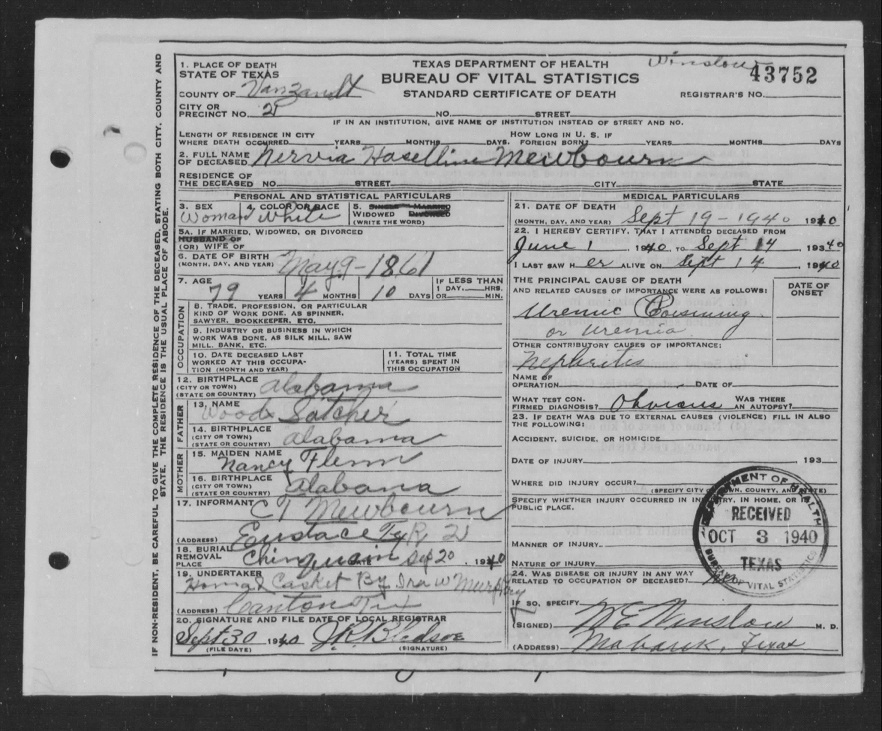 IF NON-RESIDENT, BE CAREFUL TO GIVE THE COMPLETE RESIDENCE OF THE DECEASED, STATING BOTH CITY, COUNTY AND
STATE. THE RESIDENCE IS THE USUAL PLACE OF ABODE.
1. PLACE OF DEATH
STATE OF TEXAS
COUNTY OF Vanzandt
CITY OR
PRECINCT NO. 2
TEXAS DEPARTMENT OF HEALTH
BUREAU OF VITAL STATISTICS
STANDARD CERTIFICATE OF DEATH
Winslow
43752
REGISTRAR'S NO.
NO. STREET
IF IN AN INSTITUTION, GIVE NAME OF INSTITUTION INSTEAD OF STREET AND NO.
LENGTH OF RESIDENCE IN CITY
WHERE DEATH OCCURRED YEARS MONTHS DAYS.
HOW LONG IN U. S. IF
FOREIGN BORN? YEARS MONTHS DAYS
2. FULL NAME
OF DECEASED Nervia Haseltine Mewbourn
RESIDENCE OF
THE DECEASED NO. STREET CITY STATE
PERSONAL AND STATISTICAL PARTICULARS
3. SEX
Woman
4. COLOR OR RACE
White
5. SINGLE MARRIED
WIDOWED DIVORCED
(WRITE THE WORD)
5A. IF MARRIED, WIDOWED, OR DIVORCED
HUSBAND OF
(OR) WIFE OF
6. DATE OF BIRTH
(MONTH, DAY, AND YEAR) May 9-1861
7. AGE
79 YEARS 4 MONTHS 10 DAYS
IF LESS THAN
1 DAY, HRS.
OR MIN.
OCCUPATION
8. TRADE, PROFESSION, OR PARTICULAR
KIND OF WORK DONE, AS SPINNER,
SAWYER, BOOKKEEPER, ETC.
9. INDUSTRY OR BUSINESS IN WHICH
WORK WAS DONE, AS SILK MILL, SAW
MILL, BANK, ETC.
10. DATE DECEASED LAST
WORKED AT THIS OCCUPA-
TION (MONTH AND YEAR)
11. TOTAL TIME
(YEARS) SPENT IN
THIS OCCUPATION
12. BIRTHPLACE
(CITY OR TOWN)
(STATE OR COUNTRY) Alabama
FATHER
13. NAME
Wood Satcher
14. BIRTHPLACE
(CITY OR TOWN)
(STATE OR COUNTRY) Alabama
MOTHER
15. MAIDEN NAME
Nancy Flenn
16. BIRTHPLACE
(CITY OR TOWN)
(STATE OR COUNTRY) Alabana
17. INFORMANT C T Mewbourn
(ADDRESS) Eustace Tx R 2
18. BURIAL
REMOVAL
PLACE DATE Sep 20 1940
19. UNDERTAKER
Casket By Ira W Murphy
(ADDRESS) Canton Tex
20. SIGNATURE AND FILE DATE OF LOCAL REGISTRAR
Sept 30 1940 J.R. Bledsoe
(FILE DATE) (SIGNATURE)
MEDICAL PARTICULARS
21. DATE OF DEATH
(MONTH, DAY, AND YEAR) Sept 19-1940 1940
22. I HEREBY CERTIFY, THAT I ATTENDED DECEASED FROM
June 1 1940 TO Sept 14 19340
I LAST SAW H er ALIVE ON Sept 14 1940
THE PRINCIPAL CAUSE OF DEATH
AND RELATED CAUSES OF IMPORTANCE WERE AS FOLLOWS:
DATE OF
ONSET
Uremic Poisining
or Uremia
OTHER CONTRIBUTORY CAUSES OF IMPORTANCE:
Nephritis
NAME OF
OPERATION DATE OF
WHAT TEST CON-
FIRMED DIAGNOSIS? Obvious WAS THERE
AN AUTOPSY?
23. IF DEATH WAS DUE TO EXTERNAL CAUSES (VIOLENCE) FILL IN ALSO
THE FOLLOWING:
ACCIDENT, SUICIDE, OR HOMICIDE
DATE OF INJURY 193
WHERE DID INJURY OCCUR?
(SPECIFY CITY OR TOWN, COUNTY, AND STATE)
SPECIFY WHETHER INJURY OCCURRED IN INDUSTRY, IN HOME, OR IN
PUBLIC PLACE.
MANNER OF INJURY
NATURE OF INJURY
24. WAS DISEASE OR INJURY IN ANY WAY
RELATED TO OCCUPATION OF DECEASED?
IF SO, SPECIFY
(SIGNED) W E Winslow M. D.
(ADDRESS) Mabank, Texas
DEPARTMENT OF HEALTH
RECEIVED
OCT 3 1940
TEXAS
BUREAU OF VITAL STATISTICS